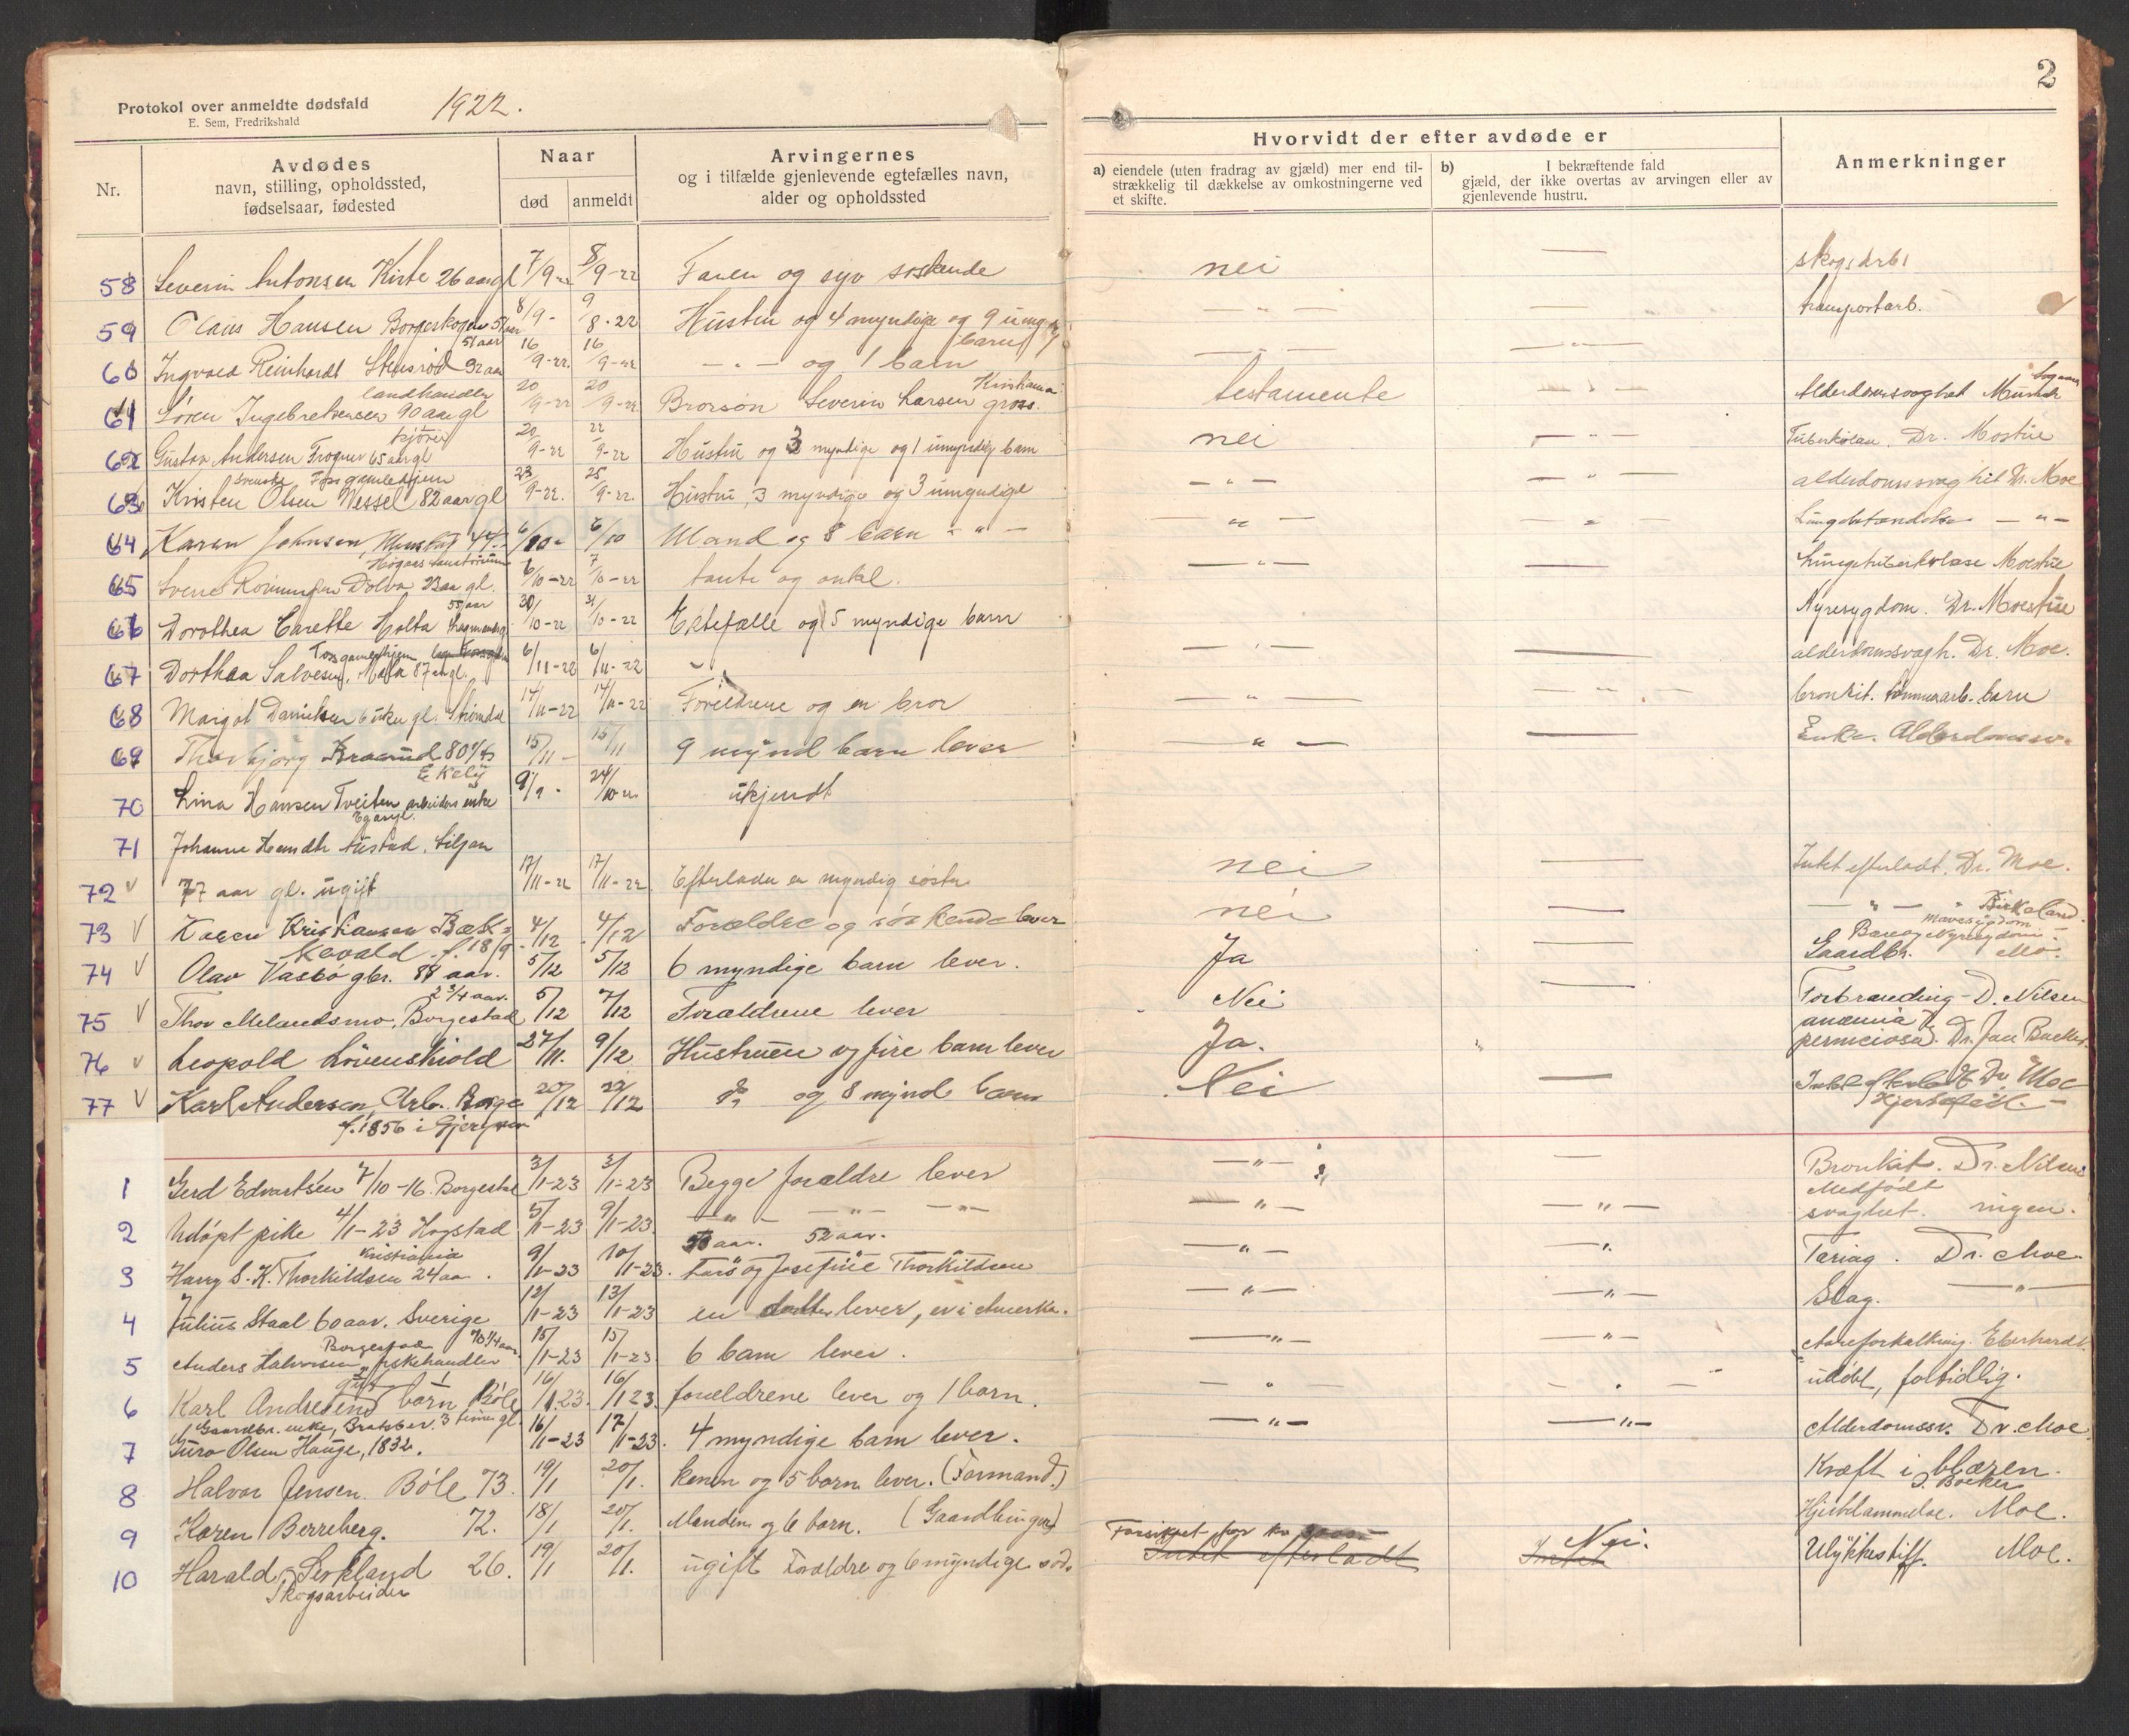 Protokol over anmeldte dødsfald 1922.
E. Sem, Fredrikshald
2
Nr.
Avdødes
navn, stilling, opholdssted,
fødselsaar, fødested
Naar
død anmeldt
Arvingernes
og i tilfælde gjenlevende egtefælles navn,
alder og opholdssted
Hvorvidt der efter avdøde er
a) eiendele (uten fradrag av gjæld) mer end til-
strækkelig til dækkelse av omkostningerne ved
et skifte.
b) I bekræftende fald
gjæld, der ikke overtas av arvingen eller av
gjenlevende hustru.
Anmerkninger
58 Severin Antonsen 26 aar gl 7/9-22 8/9-22 Faren og syv søskende nei — skogsarb.
59 Olaus Hansen Borgeskogen 51 aar 8/9- 9/8-22 Hustru og 4 myndige og 9 umynd. barn — " — — transportarb.
60 Ingvald Reinhardt Stensrød 92 aar 16/9-22 16/9-22 — " — og 1 barn — " — — " —
landhandler
61 Søren Ingebretsen 90 aar gl 20/9-22 20/9-22 Brorsøn Severin Larsen Kristiania gros. testamente — " — Alderdomssvaghet Munch
kjører
62 Gustav Andersen Frogner 65 aar gl 20/9-22 22/9-22 Hustru og 3 myndige og 1 umyndig barn nei — " — Tuberkulose. Dr. Mostue
Foss gamlehjem
63 Kristen Olsen Wessel 82 aar gl 23/9-22. 25/9-22. Hustru, 3 myndige og 3 umyndige — " — — " — alderdomssvaghet Dr. Moe
64 Karen Johnsen, 47 6/10- 6/10 Mand og 8 barn — " — — " — — " — Lungebetændelse — " —
65 Dolva 23 aar gl. 6/10-22 7/10-22 tante og onkel. — " — — Lungetuberkulose Moestue
55 aar
66 Dorothea Carette Holta 30/10-22 31/10-22 Ektefælle og 5 myndige barn Nyresygdom. Dr. Moestue
67 Dorthea Salvesen, Mæla 87 aar gl. 6/11-22 6/11-22 — " — — alderdomssvagh. Dr. Moe.
68 Margot Danielsen 6 uker gl. Strømdal 14/11-22 14/11-22 Forældrene og en bror — " — — " — bronkit. tømmerarb. barn
69 Thorbjørg Kraarud 80 15/11- 15/11 9 mynd barn lever — " — — Enke. Alderdomssv.
70 Lina Hansen Tveiten arbeiders enke 9/9- 24/10-22 ukjendt
71 Johanne Austad. Siljan
72 77 aar gl. ugift 17/11-22 17/11-22 Efterlader en myndig søster nei — Intet efterladt. Dr. Moe.
73 Karen Kristiansen Bæk- 4/12 4/12 Forældre og søskende lever nei — — " — " Birkeland.
74 Olav Vasbø gbr. 88 aar. 5/12 5/12 6 myndige barn lever. Ja — Gaardbr. Moe.
2 3/4 aar.
75 Thor Melandsmo, Borgestad 5/12 7/12 Forældrene lever Nei — Forbrænding - D. Nilsen
76 Leopold Løvenskiold 27/11. 9/12 Hustruen og fire barn lever Ja. anæmia perniciosa. Dr. Jan Bæcker.
77 Karl Andersen, Arb. Borge 20/12 22/12 do og 8 mynd barn Nei — Intet efterladt Dr. Moe
f. 1856 i Gjerpen Hjertefeil. —
1 Gerd Edvartsen 7/10-16. Borgestad 3/1-23 3/1-23 Begge forældre lever — " — — Bronkit. Dr. Nilsen
2 Udøpt pike 4/1-23 Hogstad 5/1-23 9/1-23 — " — — " — — " — — " — — " — Medfødt svaghet. ingen.
Kristiania 52 aar.
3 Harry S. K. Thorkildsen 24 aar. 9/1-23 10/1-23. Lars og Josefine Thorkildsen — " — — " Tæring. Dr. Moe.
4 Julius Staal 60 aar. Sverige 12/1-23 13/1-23 en datter lever, er i Amerka. — " — — " — Slag. — " —
Borgestad 70 1/4 aar.
5 Anders Halvorsen, fiskehandler 15/1-23 15/1-23 6 barn lever. — " — — " — Aareforkalkning. Eberhardt.
6 Karl Andresens barn Bøle 16/1 23. 16/1 23 forældrene lever og 1 barn. — " — — " — udøbt, fortidlig.
Gaardbr. enke, Bratsberg. 3 timer gl.
7 Guro Olsen Hauge, 1832. 16/1-23 17/1-23. 4 myndige barn lever. — " — — " — Alderdomssv. Dr. Moe.
8 Halvor Jensen. Bøle 73. 19/1 20/1. konen og 5 barn lever. (Formand.) Kræft i blæren. J. Bæcker
9 Karen Berreberg. 72. 18/1 20/1. Manden og 6 barn. (Gaardbruger) Hjertelammelse. Moe.
10 Harald Serkland 26. 19/1 20/1. ugift Forældre og 6 myndige sød. Intet efterladt Intet Nei. Ulykkestilf. Moe.
Skogsarbeider